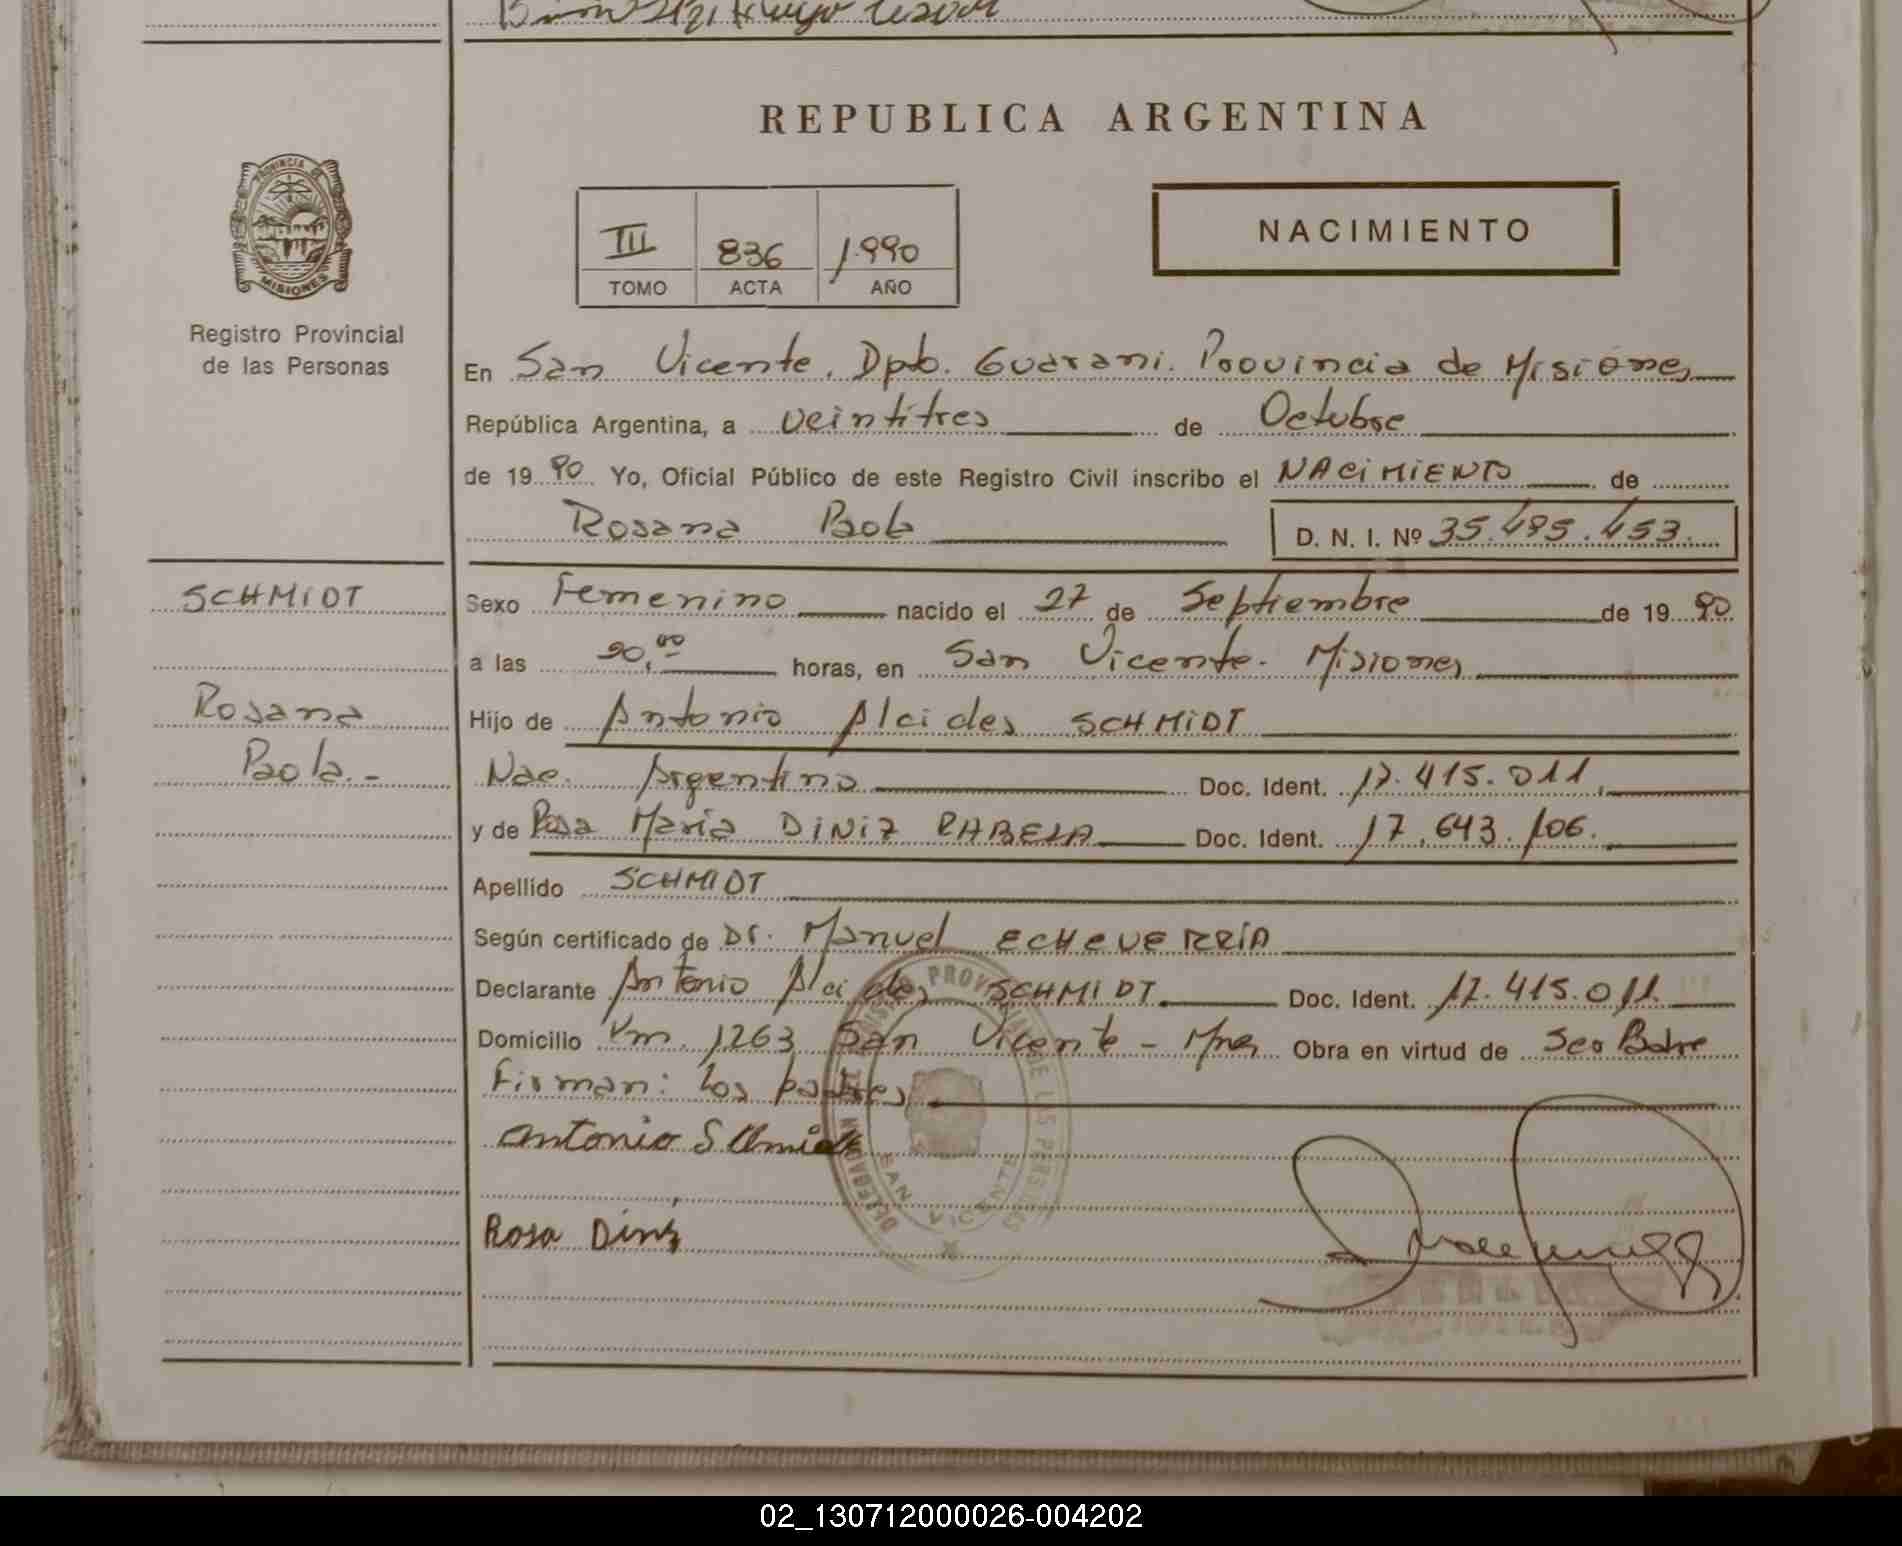 REPUBLICA ARGENTINA
PROVINCIA DE MISIONES
Registro Provincial
de las Personas
III 836 1.990
TOMO ACTA AÑO
NACIMIENTO
En San Vicente, Dpto. Guarani. Provincia de Misiones
República Argentina, a veintitres de Octubre
de 19 90 Yo, Oficial Público de este Registro Civil inscribo el NACiMiENTO de
Rosana Paola D. N. I. Nº 35.495.453.
SCHMIDT
Rosana
Paola.-
Sexo Femenino nacido el 27 de Septiembre de 19 90
a las 20,00 horas, en San Vicente. Misiones
Hijo de Antonio Alcides SCHMiDT
Nac. Argentina Doc. Ident. 17.415.011.
y de Rosa Maria DiNiZ RABELA Doc. Ident. 17.643.106.
Apellido SCHMIDT
Según certificado de Dr. Manuel ECHEVERRÍA
Declarante Antonio Alcides SCHMIDT Doc. Ident. 17.415.011.
Domicilio Km. 1263 San Vicente - Mnes Obra en virtud de
Firman: Los padres
Antonio Schmidt
Rosa Diniz
SAN VICENTE
02_130712000026-004202